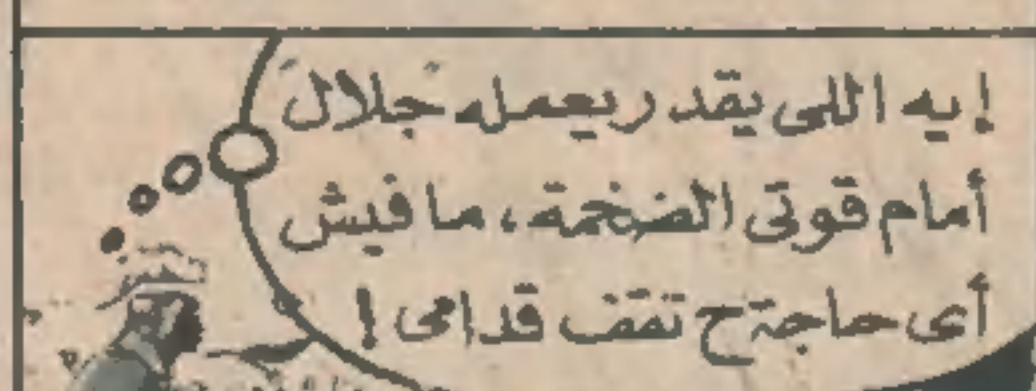 إيه اللى يقدر يعمله جلال
أمام قوتى الضخمة، ما فيش
أى حاجة ح تقف قدامى !